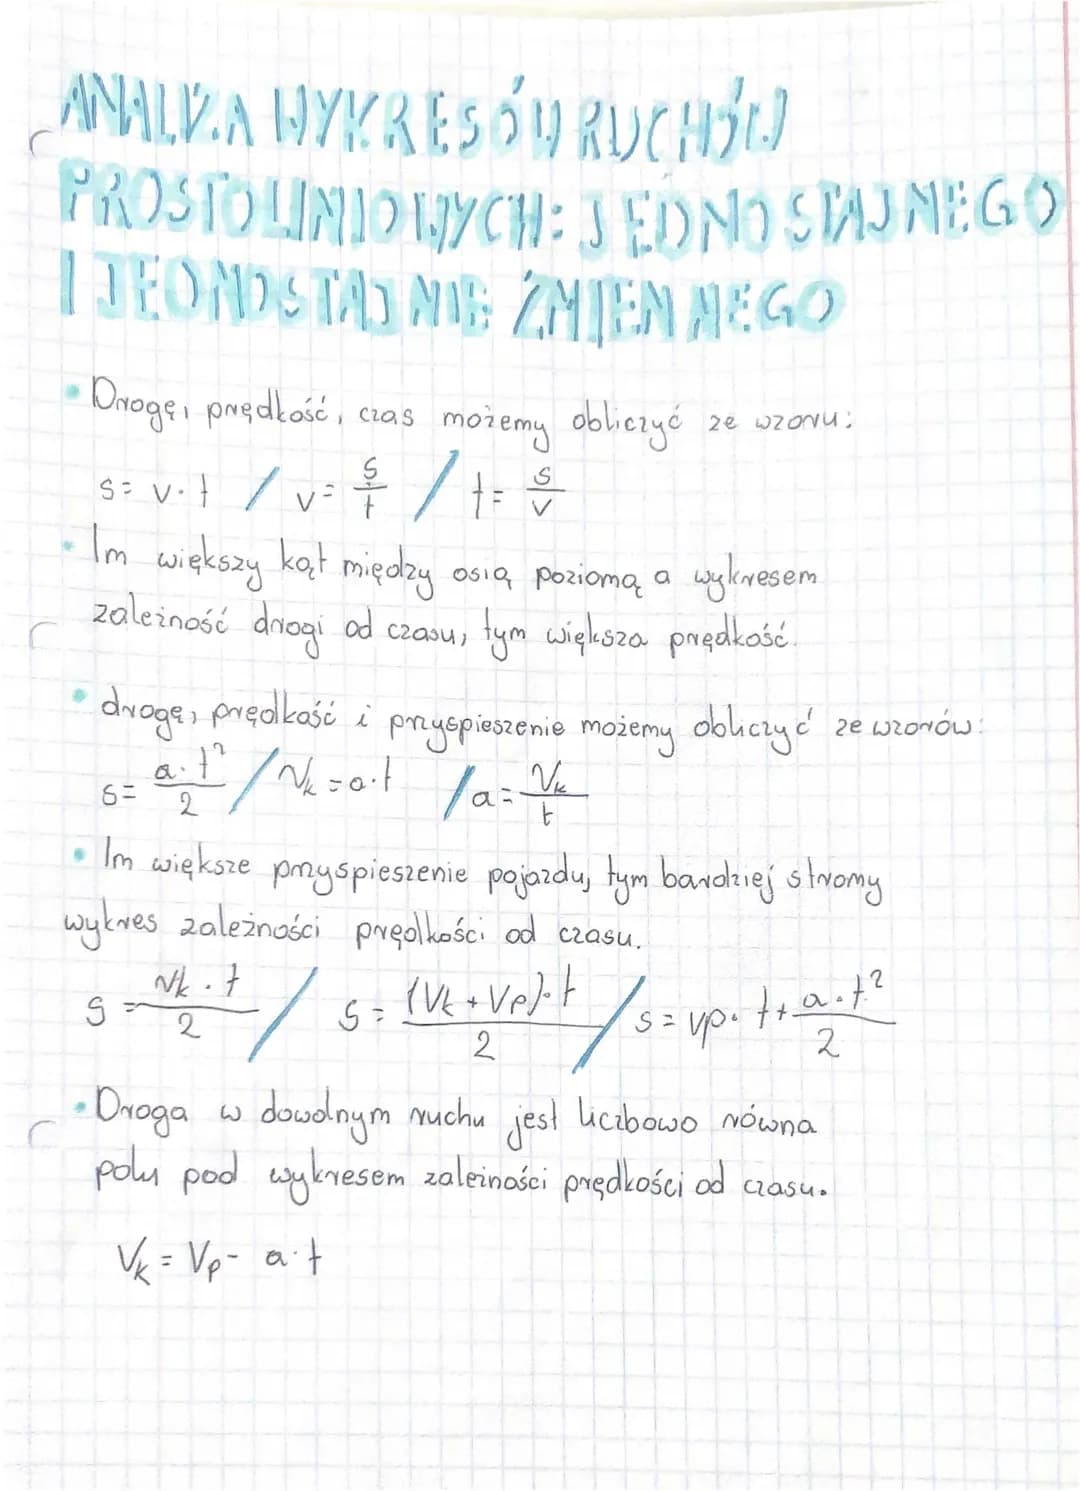 ANALIZA WYKRESÓW RUCHÓW
PROSTOLINIOWYCH: JEDNOSTAJNEGO
I JEDNOSTAJNIE ZMIENNEGO
• Drogę, prędkość, czas możemy obliczyć ze wzoru:
s = v · t / v = s/t / t = s/v
• Im większy kąt między osią poziomą a wykresem
zależność drogi od czasu, tym większa prędkość.
• drogę, prędkość i przyspieszenie możemy obliczyć ze wzorów:
s = a · t²/2 / Vk = a · t / a = Vk/t
• Im większe przyspieszenie pojazdu, tym bardziej stromy
wykres zależności prędkości od czasu.
s = Vk · t/2 / s = (Vk + Vp) · t/2 / s = vp · t + a · t²/2
• Droga w dowolnym ruchu jest liczbowo równa
polu pod wykresem zależności prędkości od czasu.
Vk = Vp - a · t